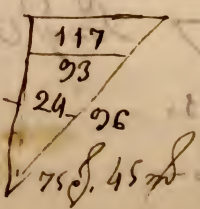 117
93
24 96
75 45